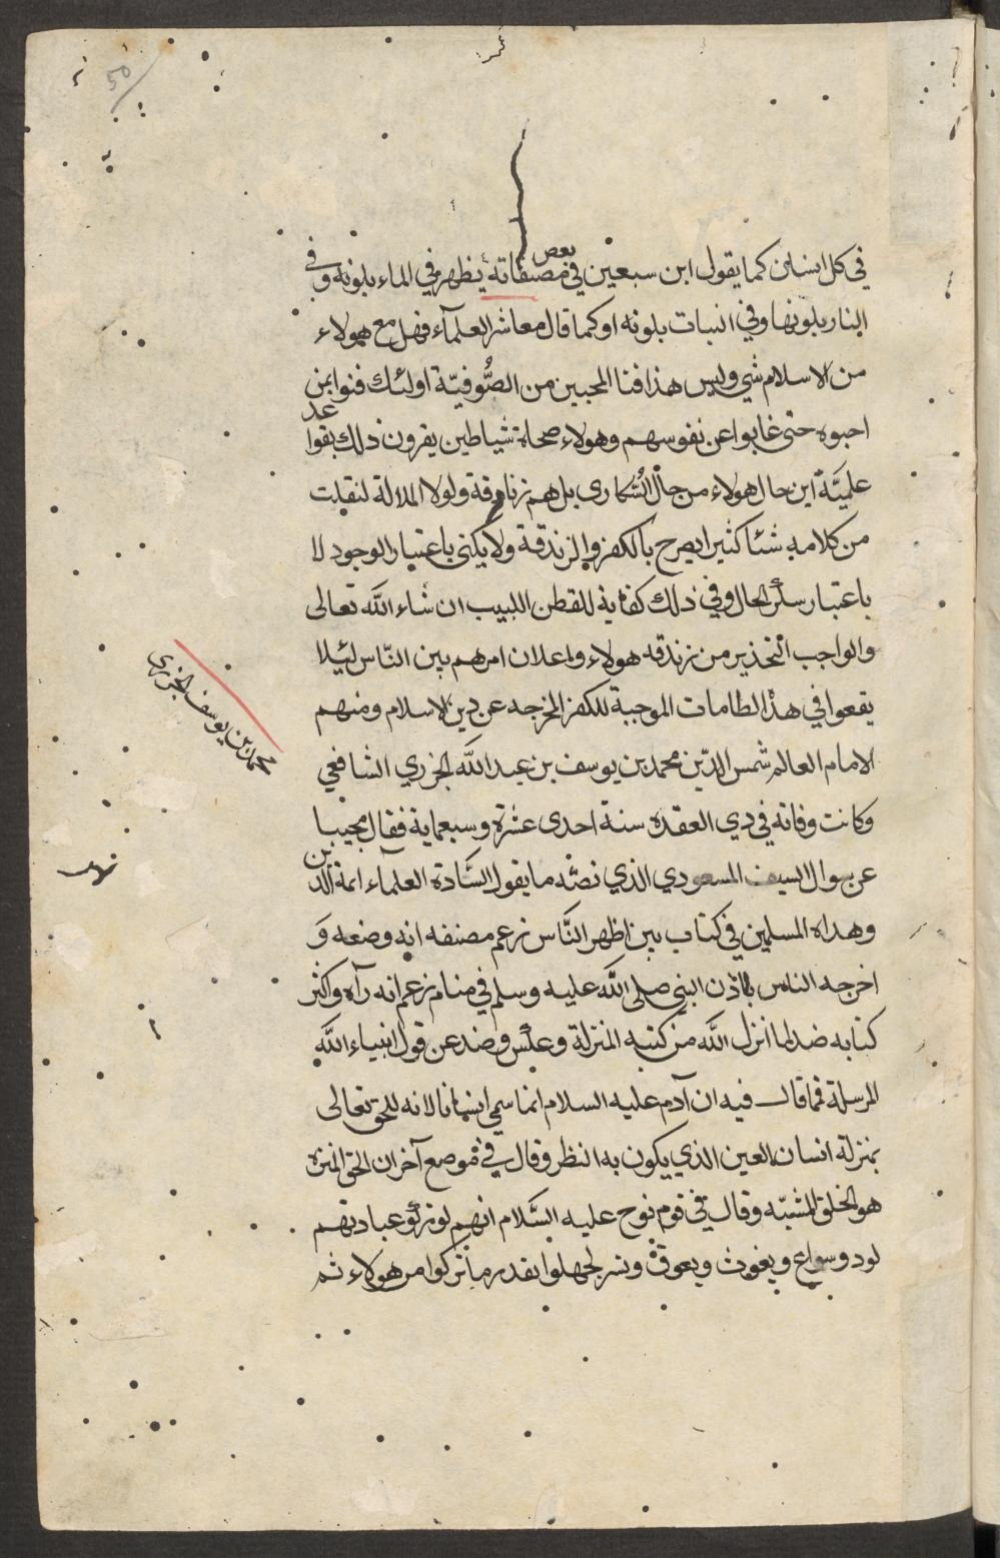 في كل انسان كما يقول ابن سبعين في بعض مصنفاته يظهر في الماء بلونه وفي
النار بلونها وفي النبات بلونه او كما قال معاشر العلمآء فهل مع هولاء
من الاسلام شي وليس هذا فنا المحبين من الصُّوفيّة اولئك فنوا بمن
احبوه حتى غابوا عن نفوسهم وهولاء صحاة شياطين يقرون ذلك بقواعد
علميَّة اين حال هولاء من حال السُّكارى بل هم زنادقة ولولا الملالة لنقلت
من كلامه شئا كثيرا يصرح بالكفر والزندقة ولا يكنى باعتبار الوجود لا
باعتبار سائر الحال وفي ذلك كفاية للفطن اللبيب ان شاء الله تعالى
والواجب التحذير من زندقه هولاء واعلان امرهم بين النّاس لئيلا
يقعوا في هذا الطامات الموجبة للكفر المخرجه عن دين الاسلام ومنهم
الامام العالم شمس الدين محمد بن يوسف بن عبد الله الجزري الشافعي
وكانت وفاته في دي العقده سنة احدى عشرة وسبعماية فقال مجيبا
عن سوال السيف المسعودي الذي نصّه ما يقول السَّادة العلمآء ائمة الدين
وهداه المسلمين في كتاب بين اظهر النَّاس زعم مصنفه انه وضعه وَ
اخرجه الناس باذن النبي صلى الله عليه وسلم في منام زعم انه رآه وأكثر
كتابه ضد لما انزل الله من كتبه المنزلة وعكس وضد عن قول انبياء الله
المرسلة فما قال فيه ان آدم عليه السلام انما سمي انسانا لانه للحق تعالى
بمنزلة انسان العين الذي يكون به النظر وقال في موضع آخر ان الحق المنزه
هو الخلق المشبّه وقال في قوم نوح عليه السَّلام انهم لو تركو عبادتهم
لود وسواع ويغوث ويعوق ونسر لجهلوا بقدر ما تركوا من هولاء ثم
محمد بن يوسف الجزري